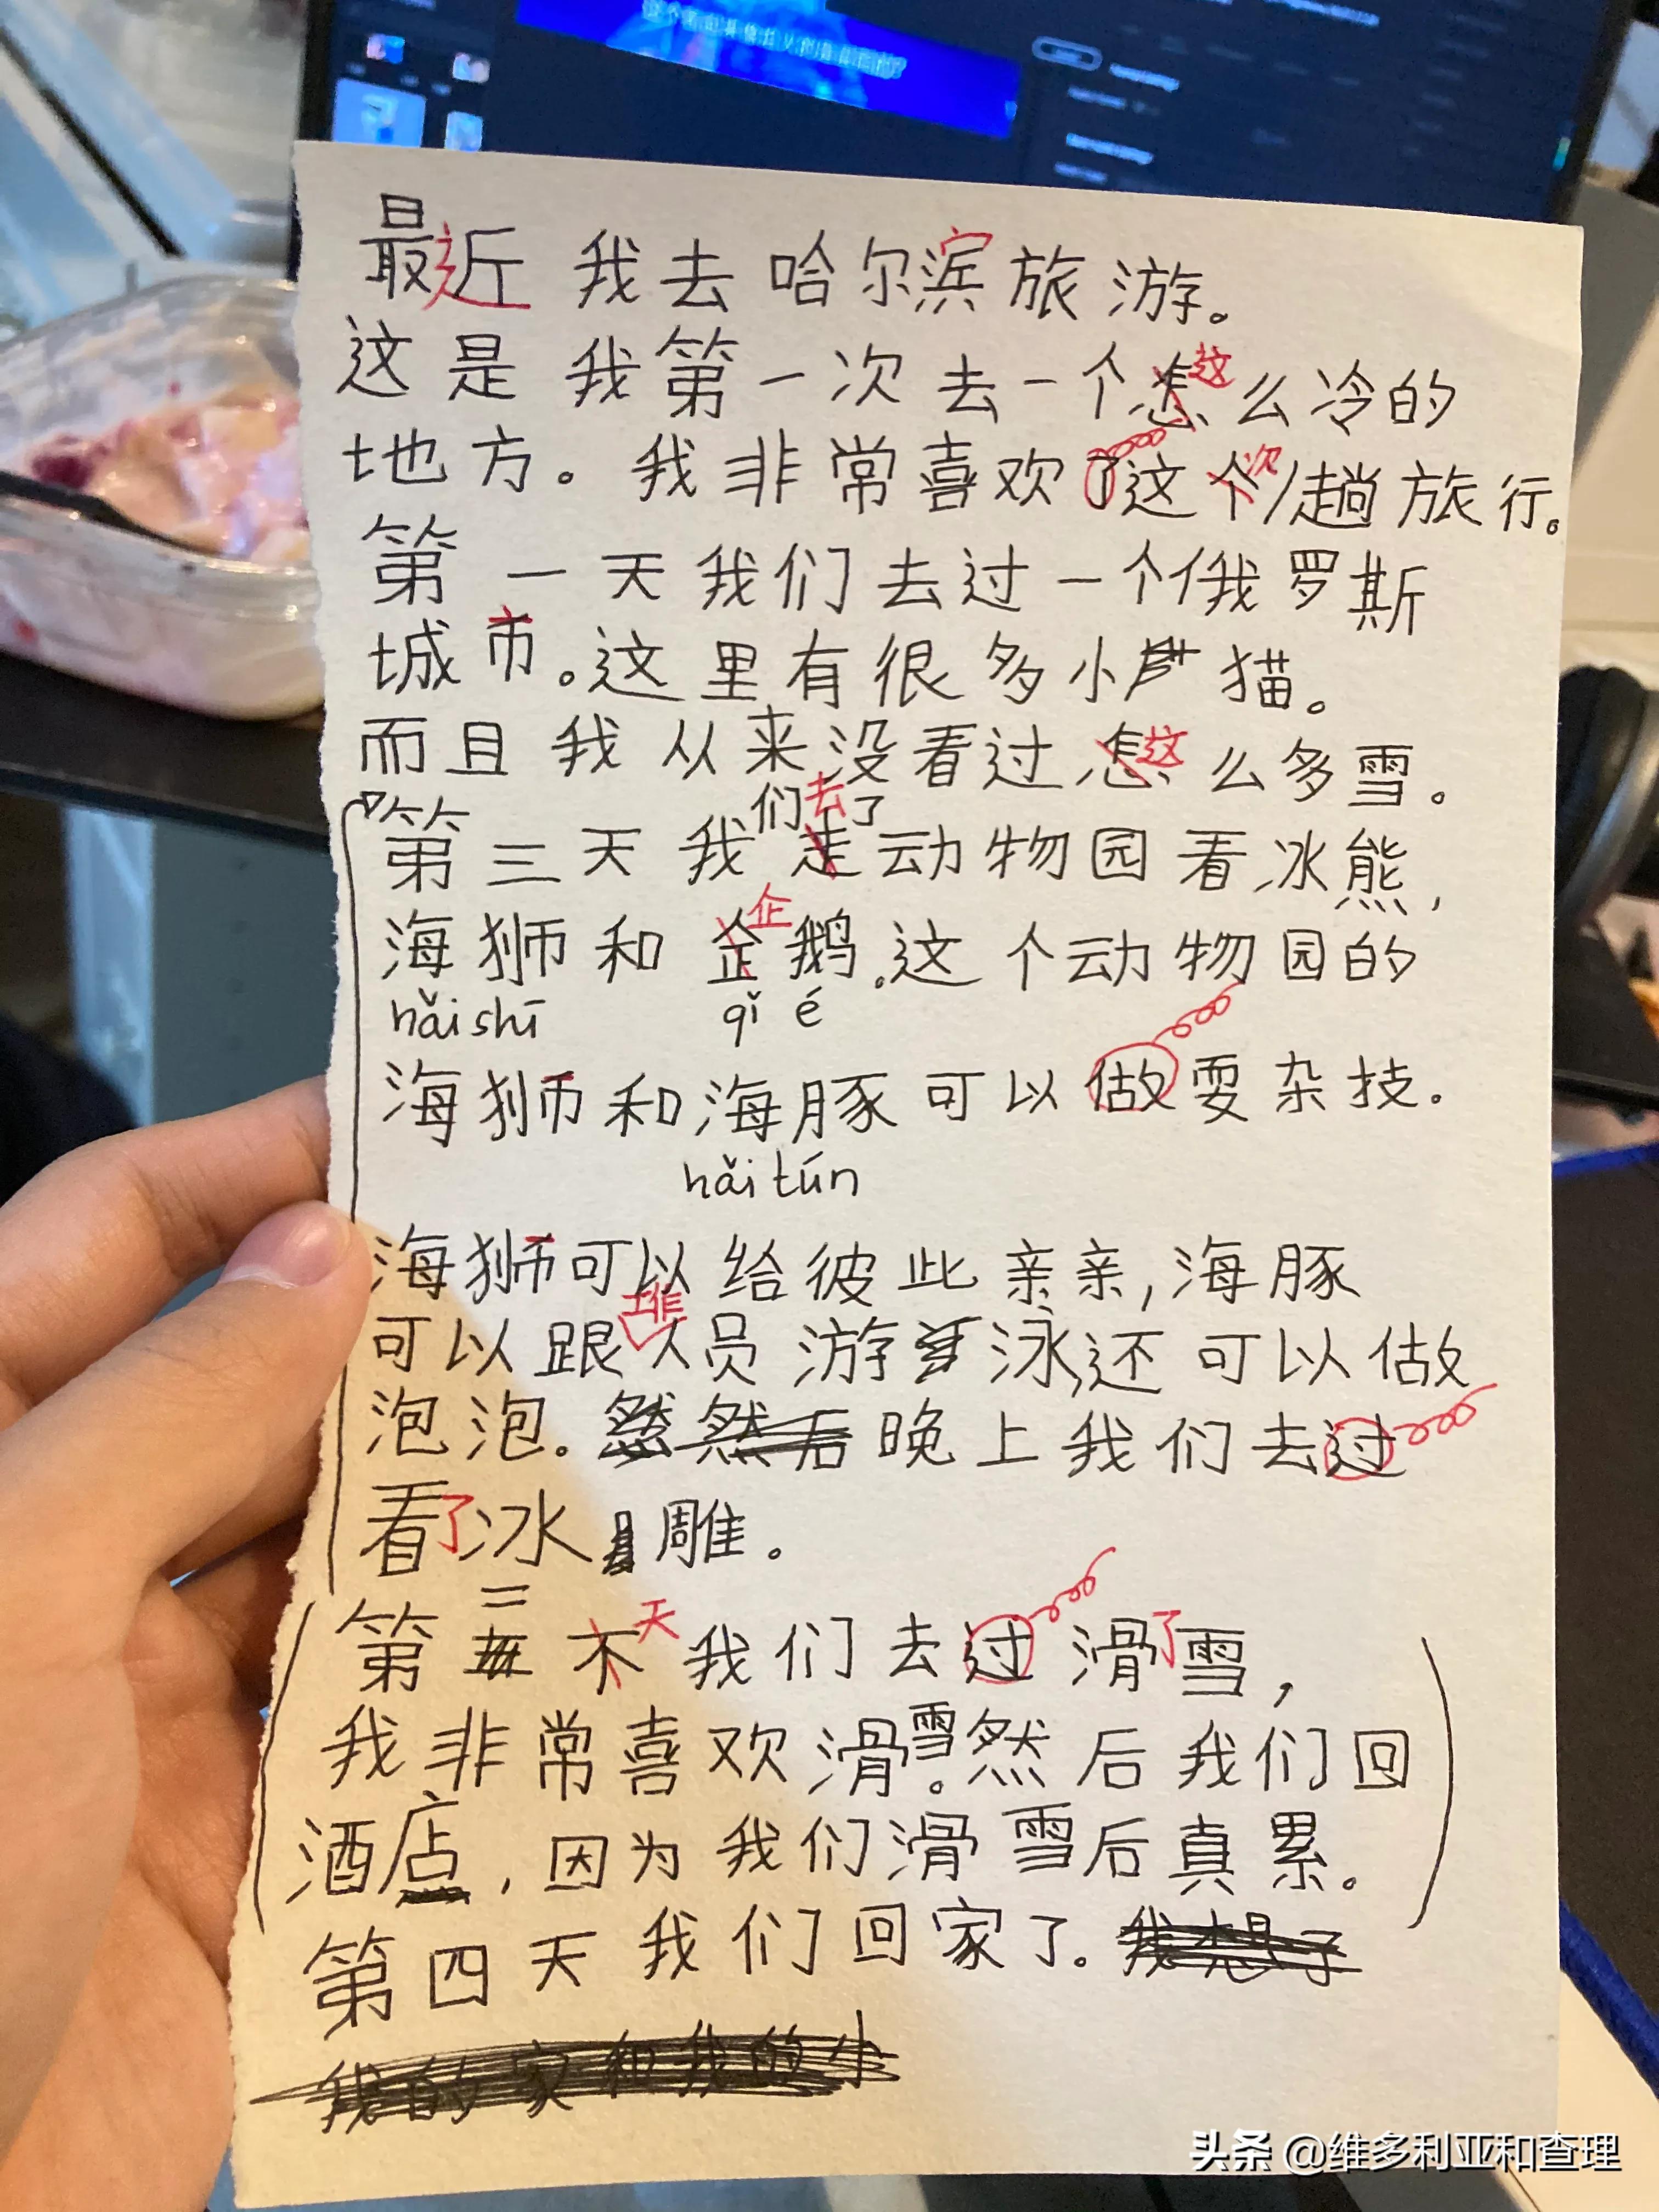 最近我去哈尔滨旅游。
这是我第一次去一个怎这么冷的
地方。我非常喜欢了这个次/趟旅行。
第一天我们去过一个俄罗斯
城市。这里有很多小猫。
而且我从来没看过怎这么多雪。
们去了
第三天我走动物园看冰熊,
企
海狮和企鹅。这个动物园的
hǎi shī qǐ é
海狮和海豚可以做耍杂技.
hǎi tún
海狮可以给彼此亲亲,海豚
可以跟人员游泳,还可以做
泡泡.然后晚上我们去过
看了冰雕。
三
第不天我们去过滑了雪,
我非常喜欢滑雪。然后我们回
酒店,因为我们滑雪后真累。
第四天我们回家了.我想了
我的家和我的
头条 @维多利亚和查理